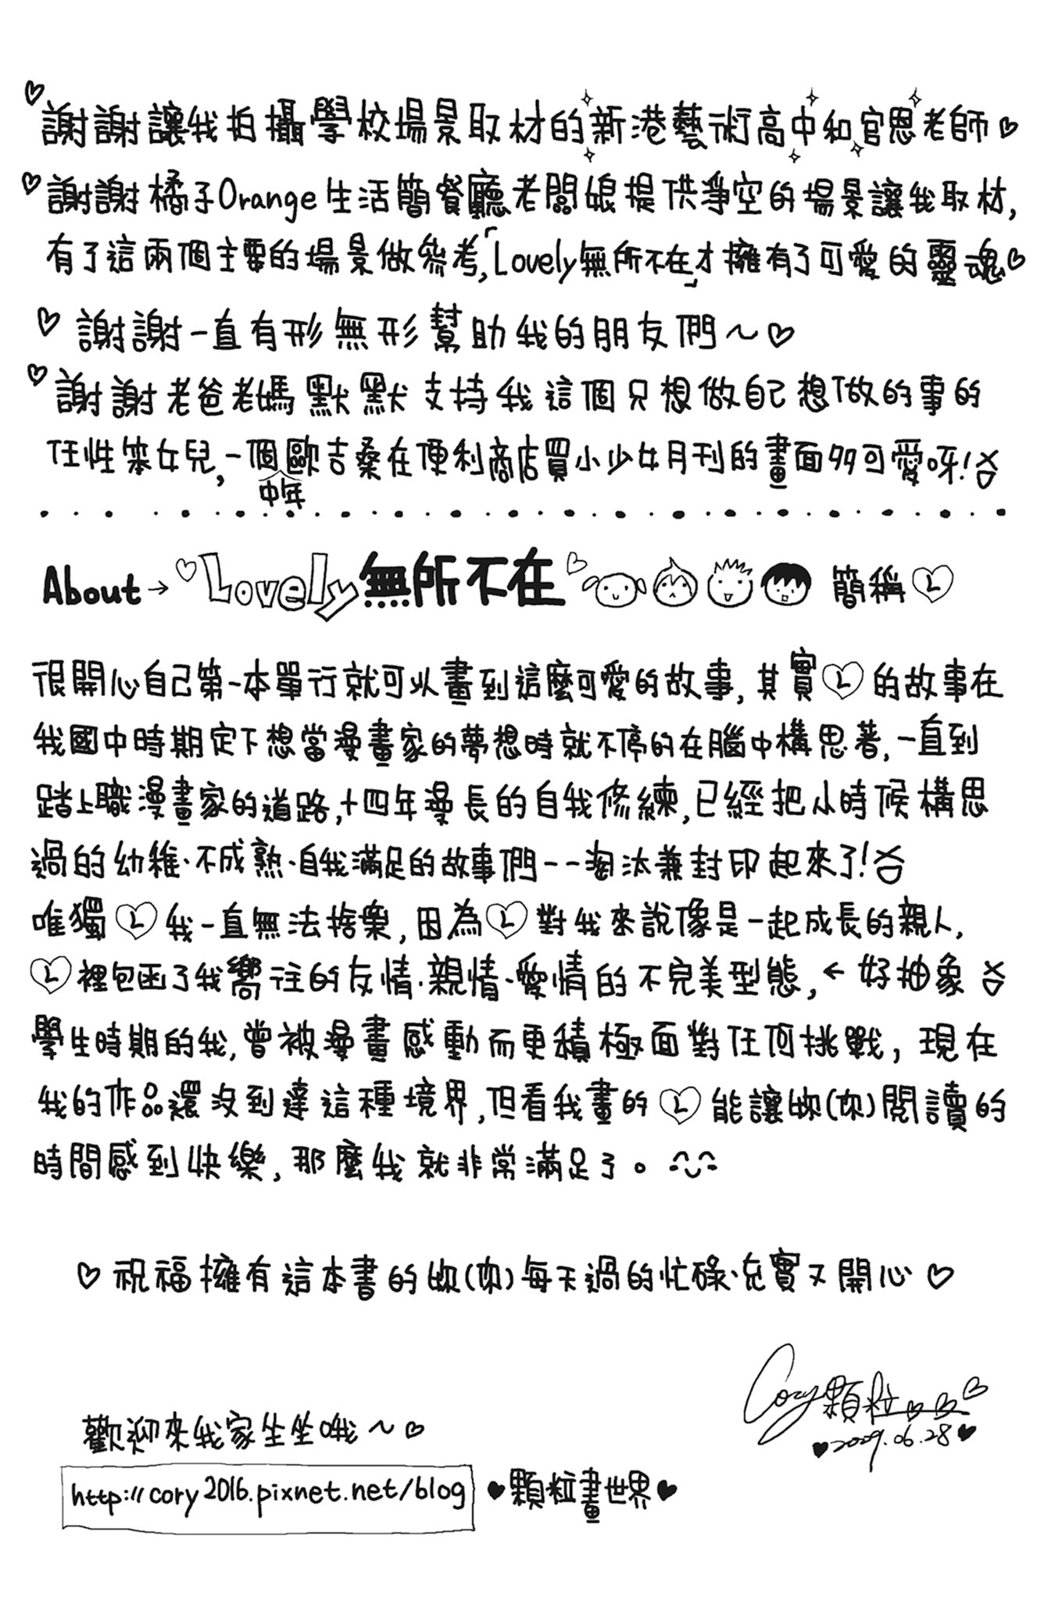 ♡謝謝讓我拍攝學校場景取材的新港藝術高中和官恩老師♡
♡謝謝橘子Orange生活簡餐廳老闆娘提供淨空的場景讓我取材,
有了這兩個主要的場景做參考,「Lovely無所不在」才擁有了可愛的靈魂♡
♡謝謝一直有形無形幫助我的朋友們~♡
♡謝謝老爸老媽默默支持我這個只想做自己想做的事的
任性笨女兒,一個歐吉桑在便利商店買小少女月刊的畫面多可愛呀!
中年
About→♡Lovely無所不在♡簡稱Ⓛ
很開心自己第一本單行就可以畫到這麼可愛的故事,其實Ⓛ的故事在
我國中時期定下想當漫畫家的夢想時就不停的在腦中構思著,一直到
踏上職漫畫家的道路,十四年漫長的自我修練,已經把小時候構思
過的幼稚、不成熟、自我滿足的故事們一一淘汰兼封印起來了!
唯獨Ⓛ我一直無法捨棄,因為Ⓛ對我來說像是一起成長的親人,
Ⓛ裡包函了我嚮往的友情、親情、愛情的不完美型態,←好抽象
學生時期的我,曾被漫畫感動而更積極面對任何挑戰,現在
我的作品還沒到達這種境界,但看我畫的Ⓛ能讓妳(你)閱讀的
時間感到快樂,那麼我就非常滿足了。
♡祝福擁有這本書的妳(你)每天過的忙碌、充實又開心♡
Cory顆粒♡♡♡
♥2009.06.28♥
歡迎來我家坐坐哦~♡
http://cory2016.pixnet.net/blog ♥顆粒畫世界♥